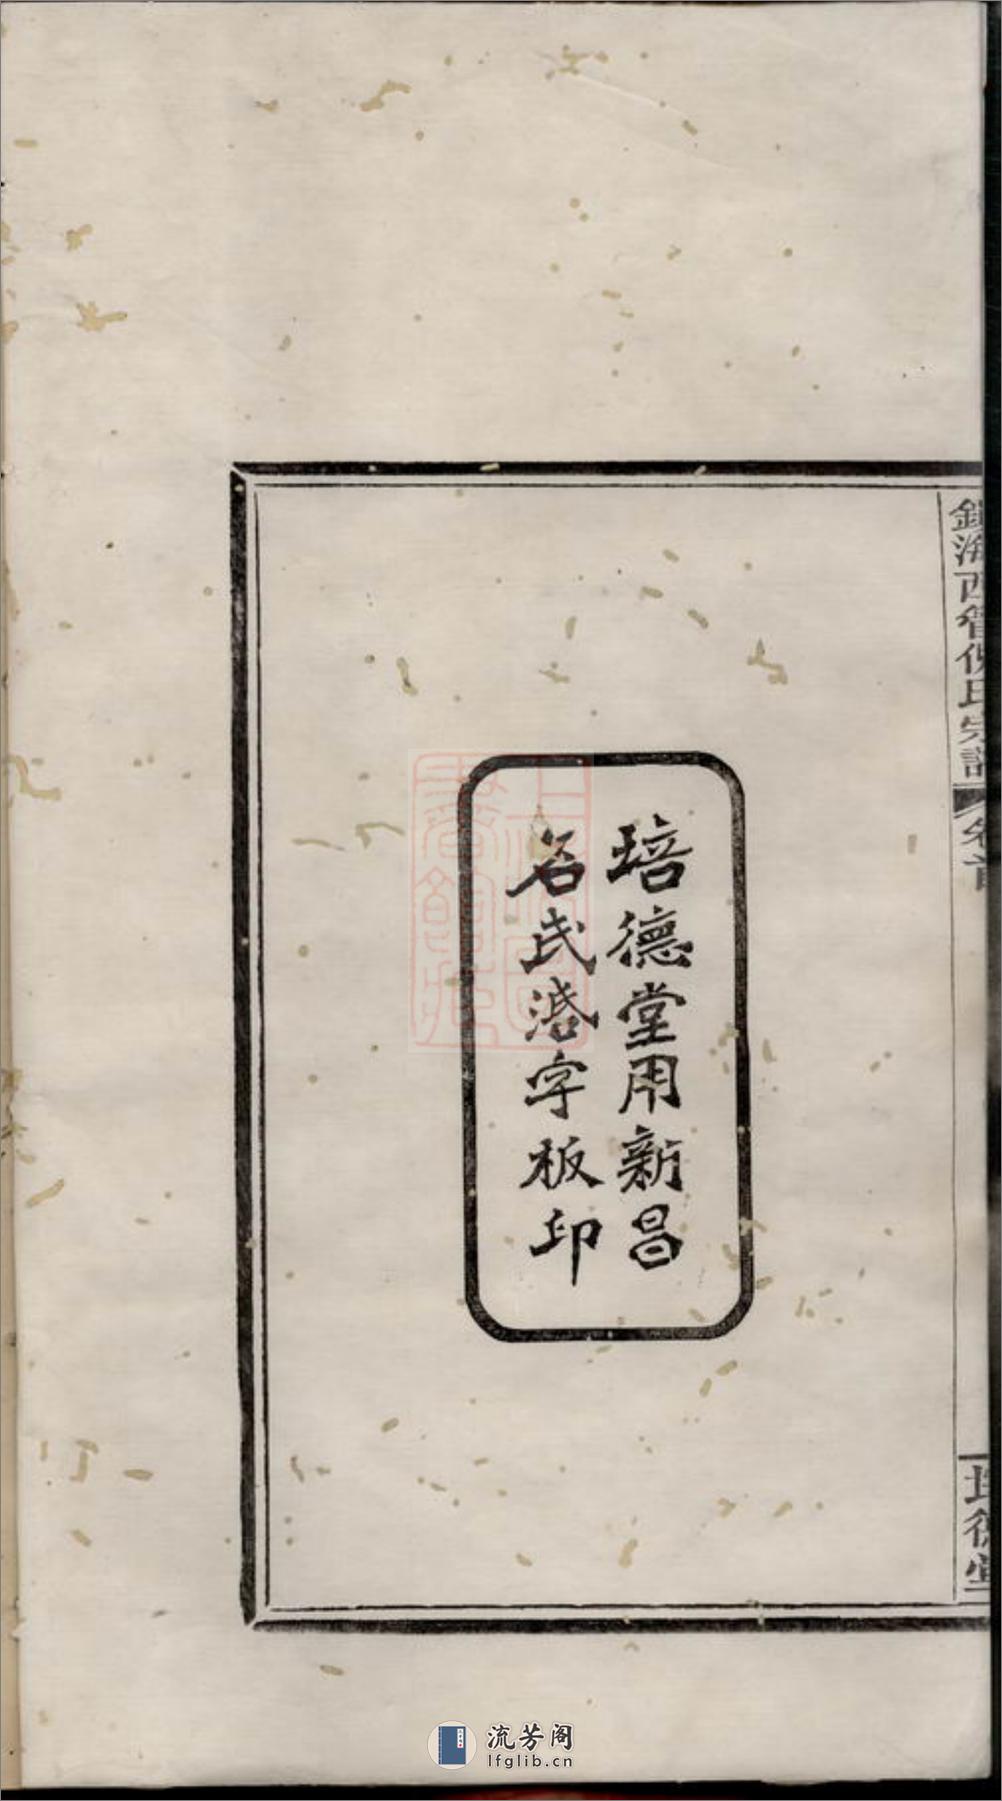 培德堂用新昌
名氏活字板印
鎮海西管倪氏宗譜
卷首
培德堂
流芳阁
lfglib.cn